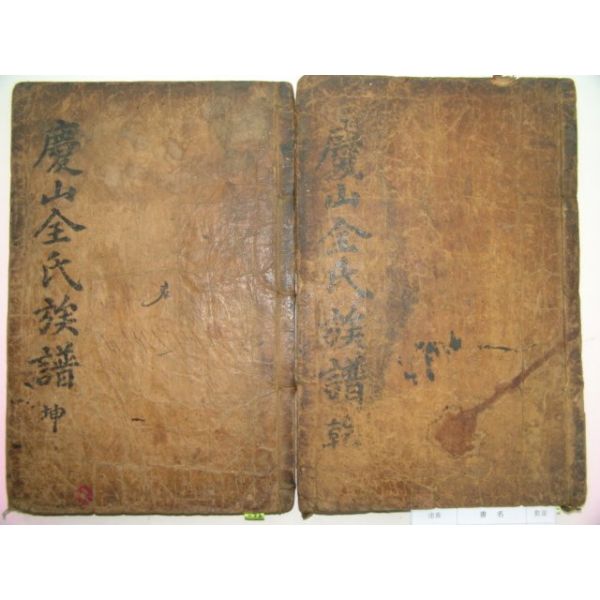 慶山全氏族譜 坤
慶山全氏族譜 乾
書名